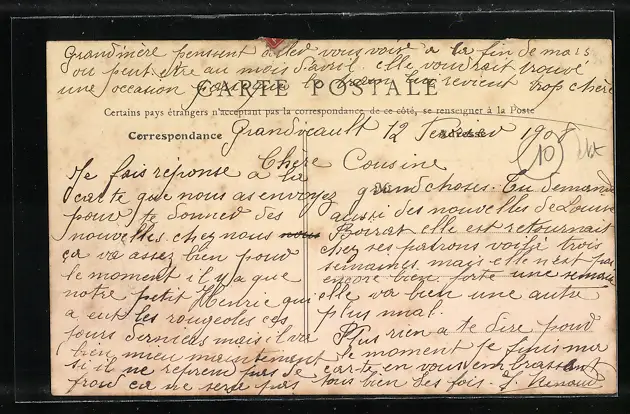 Grandmère pensent aller vous voire a la fin de mars
ou peut etre au mois d'avril. elle voudrait trouvé
une occasion le train lui revient trop chère
CARTE POSTALE
Certains pays étrangers n'acceptant pas la correspondance de ce côté, se renseigner à la Poste
Correspondance
Grandvcault 12 1908
10
Chère Cousine
Je fais réponse a la
carte que nous as envoyez
pour te donner des
nouvelles chez nous nous
ça va assez bien pour
le moment il y a que
notre petit Henrie qui
a eut les rougeoles ces
jours derniers mais il va
bien mieu maintenant
si il ne reprend pas de
froid ça ne sera pas
grand choses. Tu demande
aussi des nouvelles de Louise
Poirat elle est retournait
chez ses patrons voila trois
semaines mais elle n'est pas
encore bien forte une
elle va bien une autre
plus mal.
Plus rien a te dire pour
le moment je finis ma
carte en vous embrassent
tous bien des fois.